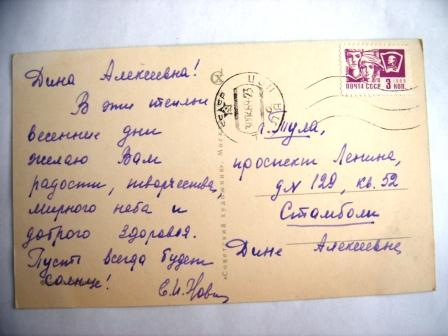 Дина Алексеевна!
В эти теплые
весенние дни
желаю Вам
радости, творчества,
мирного неба и
доброго здоровья.
Пусть всегда будет
солнце!
ПОЧТА СССР
3 КОП.
г. Тула,
проспект Ленина,
дом 129, кв. 52
Стамболи
Дине Алексеевне
«Советский художник».